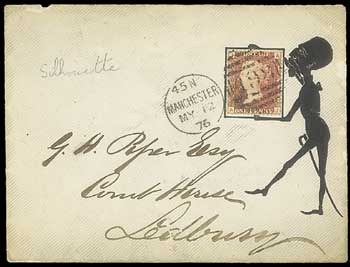 Silhouette
45 N
MANCHESTER
MY 12
76
G. H. Piper Esq
Court House
Ledbury